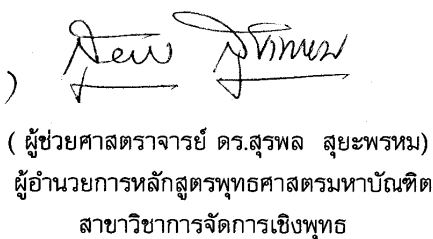 )
( ผู้ช่วยศาสตราจารย์ ดร.สุรพล สุยะพรหม)
ผู้อำนวยการหลักสูตรพุทธศาสตรมหาบัณฑิต
สาขาวิชาการจัดการเชิงพุทธ